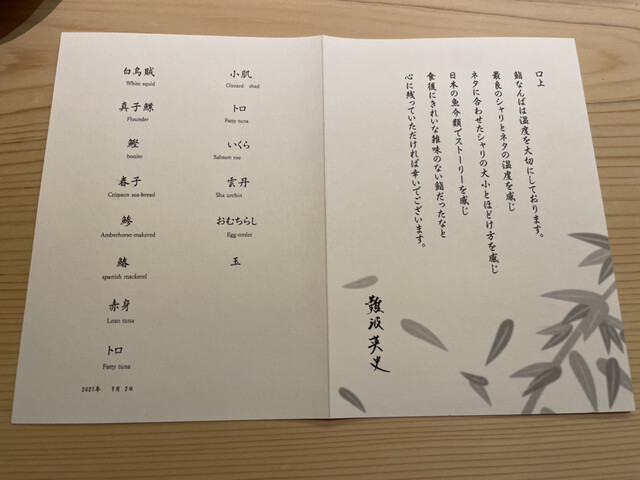 白烏賊
White squid
真子鰈
Flounder
鰹
bonito
春子
Crimson sea-bread
鯵
Amberhorse-makered
鰆
spanish mackerel
赤身
Lean tuna
トロ
Fatty tuna
2021年 9月 2日
小肌
Gizzard shad
トロ
Fatty tuna
いくら
Salmon roe
雲丹
Sha urchin
おむちらし
Egg-omlet
玉
口上
鮨なんばは温度を大切にしております。
最良のシャリとネタの温度を感じ
ネタに合わせたシャリの大小とほどけ方を感じ
日本の魚介類でストーリーを感じ
食後にきれいな雑味のない鮨だったなと
心に残っていただければ幸いでございます。
難波英史